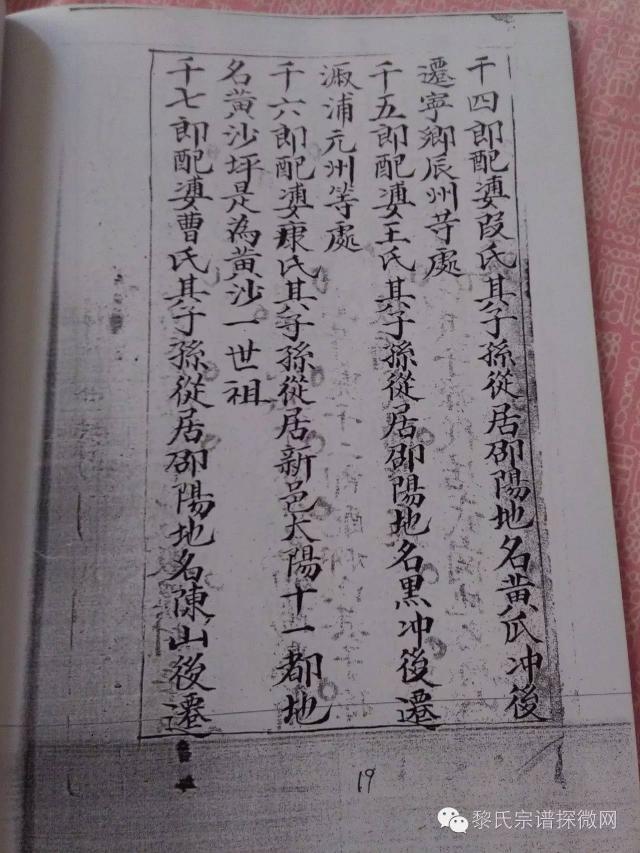 千四郎配婆段氏其子孫從居邵陽地名黃瓜冲後
遷寧鄉辰州等處
千五郎配婆王氏其子孫從居邵陽地名黑冲後遷
溆浦元州等處
千六郎配婆康氏其子孫從居新邑太陽十一都地
名黃沙坪是為黃沙一世祖
千七郎配婆曹氏其子孫從居邵陽地名陳山後遷
19
黎氏宗谱探微网